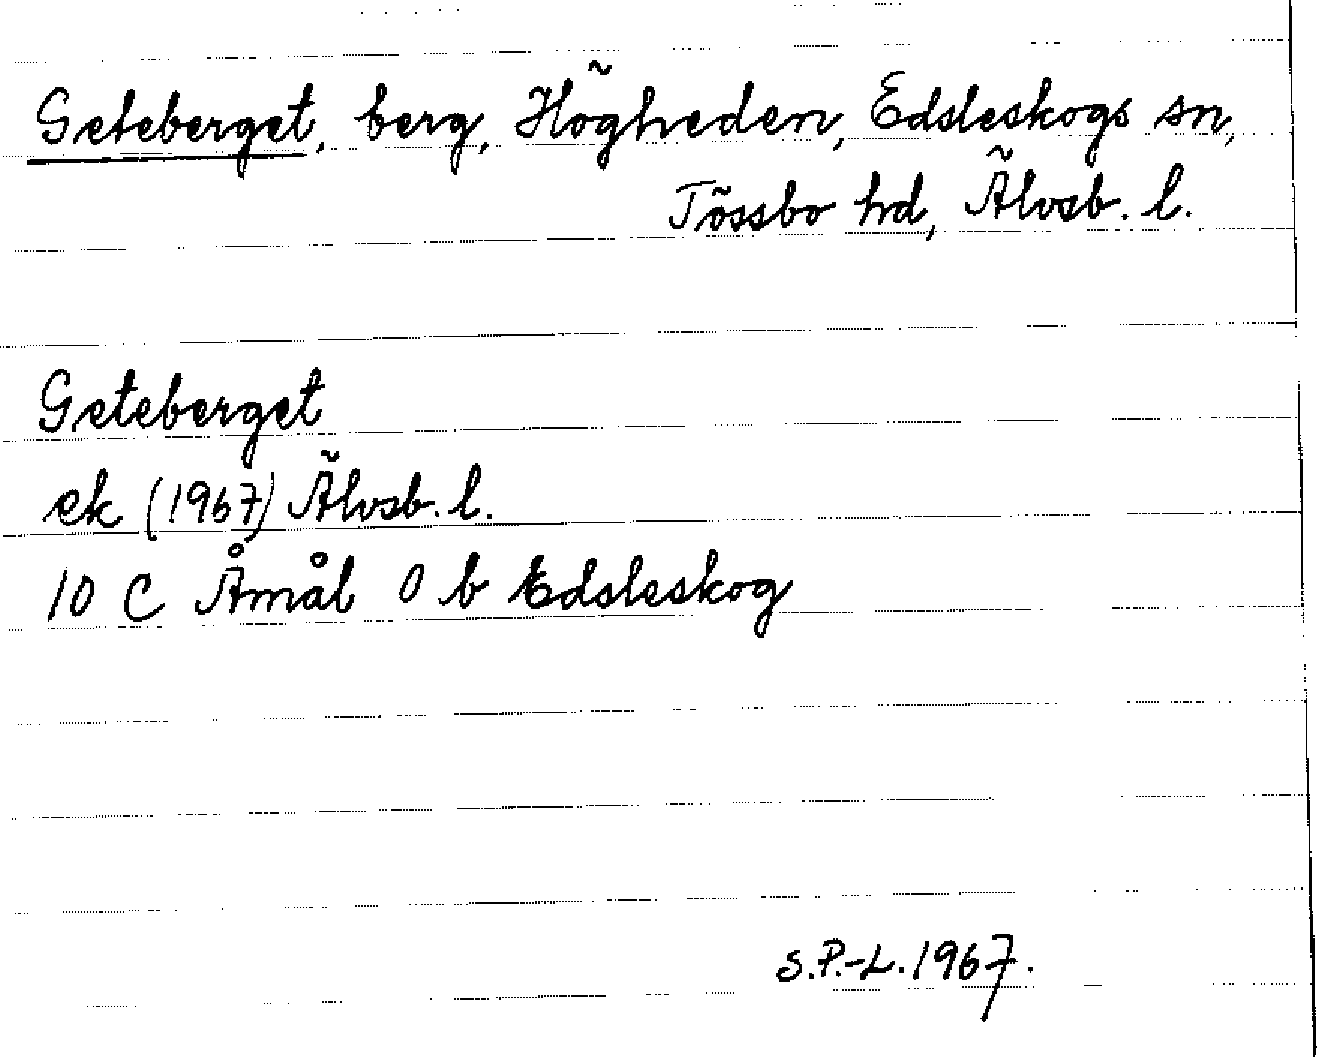 Geteberget, berg, Högheden, Edsleskogs sn,
Tössbo hd, Älvsb. l.
Geteberget
ek (1967) Älvsb. l.
10 C Åmål 0 b Edsleskog
S.P.-L. 1967.